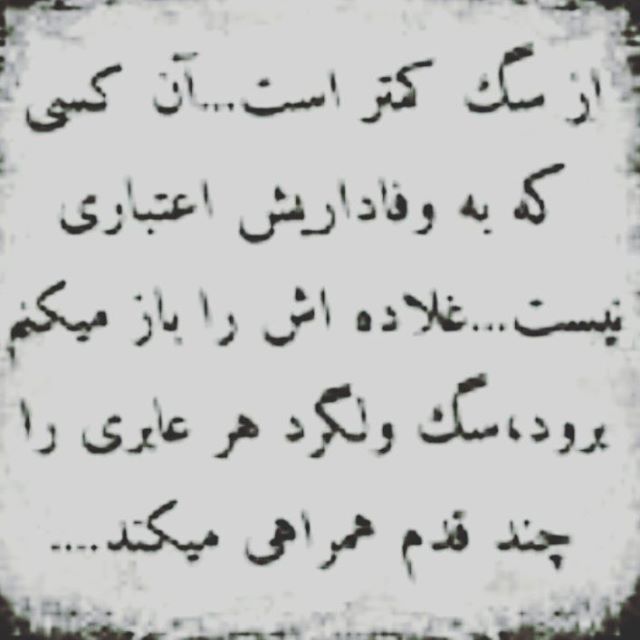 از سگ کمتر است...آن کسی
که به وفاداریش اعتباری
نیست...غلاده اش را باز میکنم
برود،سگ ولگرد هر عابری را
چند قدم همراهی میکند....